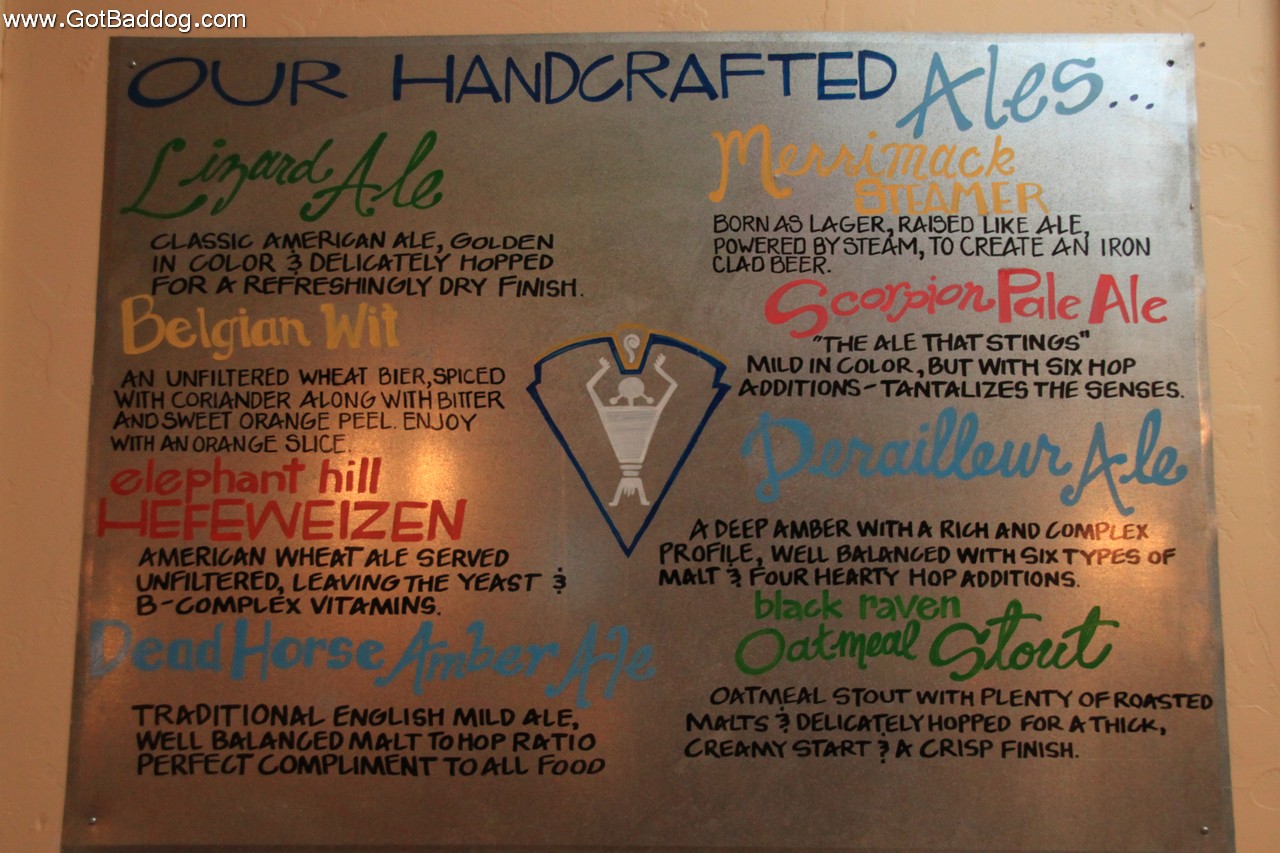 www.GotBaddog.com
OUR HANDCRAFTED Ales...
Lizard Ale
CLASSIC AMERICAN ALE, GOLDEN
IN COLOR & DELICATELY HOPPED
FOR A REFRESHINGLY DRY FINISH.
Belgian Wit
AN UNFILTERED WHEAT BIER, SPICED
WITH CORIANDER ALONG WITH BITTER
AND SWEET ORANGE PEEL. ENJOY
WITH AN ORANGE SLICE.
elephant hill
HEFEWEIZEN
AMERICAN WHEAT ALE SERVED
UNFILTERED, LEAVING THE YEAST &
B-COMPLEX VITAMINS.
Dead Horse Amber Ale
TRADITIONAL ENGLISH MILD ALE,
WELL BALANCED MALT TO HOP RATIO
PERFECT COMPLIMENT TO ALL FOOD
Merrimack
STEAMER
BORN AS LAGER, RAISED LIKE ALE,
POWERED BY STEAM, TO CREATE AN IRON
CLAD BEER.
Scorpion Pale Ale
"THE ALE THAT STINGS"
MILD IN COLOR, BUT WITH SIX HOP
ADDITIONS-TANTALIZES THE SENSES.
Derailleur Ale
A DEEP AMBER WITH A RICH AND COMPLEX
PROFILE, WELL BALANCED WITH SIX TYPES OF
MALT & FOUR HEARTY HOP ADDITIONS.
black raven
Oatmeal Stout
OATMEAL STOUT WITH PLENTY OF ROASTED
MALTS & DELICATELY HOPPED FOR A THICK,
CREAMY START & A CRISP FINISH.